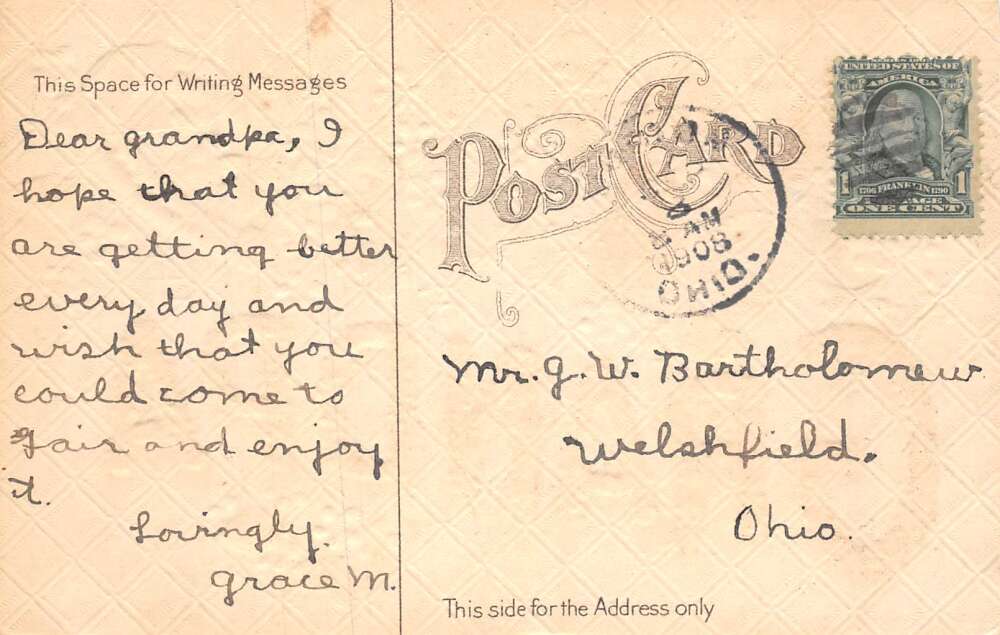 This Space for Writing Messages
Dear grandpa, I
hope that you
are getting better
every day and
wish that you
could come to
Fair and enjoy
it.
Lovingly.
Grace M.
POST CARD
AM
1908
OHIO.
UNITED STATES OF
AMERICA
1706 FRANKLIN 1790
1 POSTAGE 1
ONE CENT
Mr. G. W. Bartholomew
Welshfield.
Ohio.
This side for the Address only